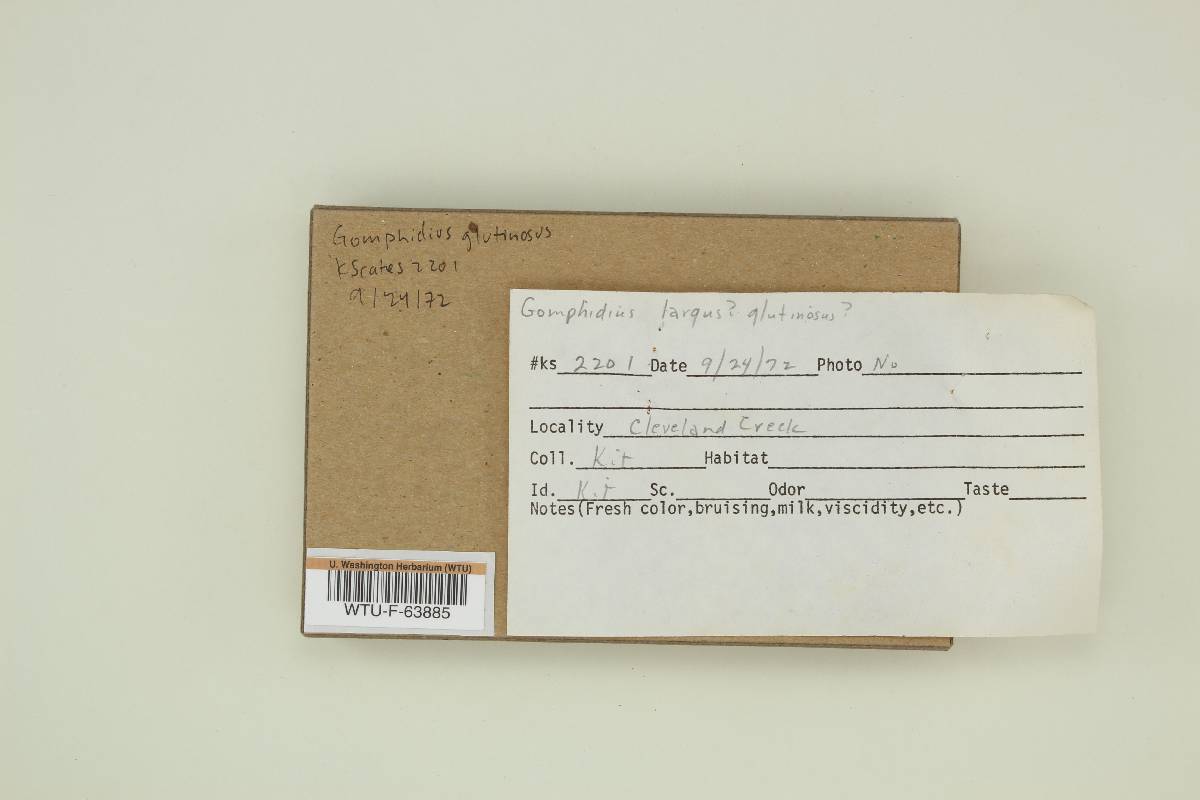 Gomphidius glutinosus
KScates 2201
9/24/72
Gomphidius largus? glutinosus?
#ks 2201 Date 9/24/72 Photo No
Locality Cleveland Creek
Coll. Kit Habitat
Id. Kit Sc. Odor Taste
Notes(Fresh color,bruising,milk,viscidity,etc.)
U. Washington Herbarium (WTU)
WTU-F-63885